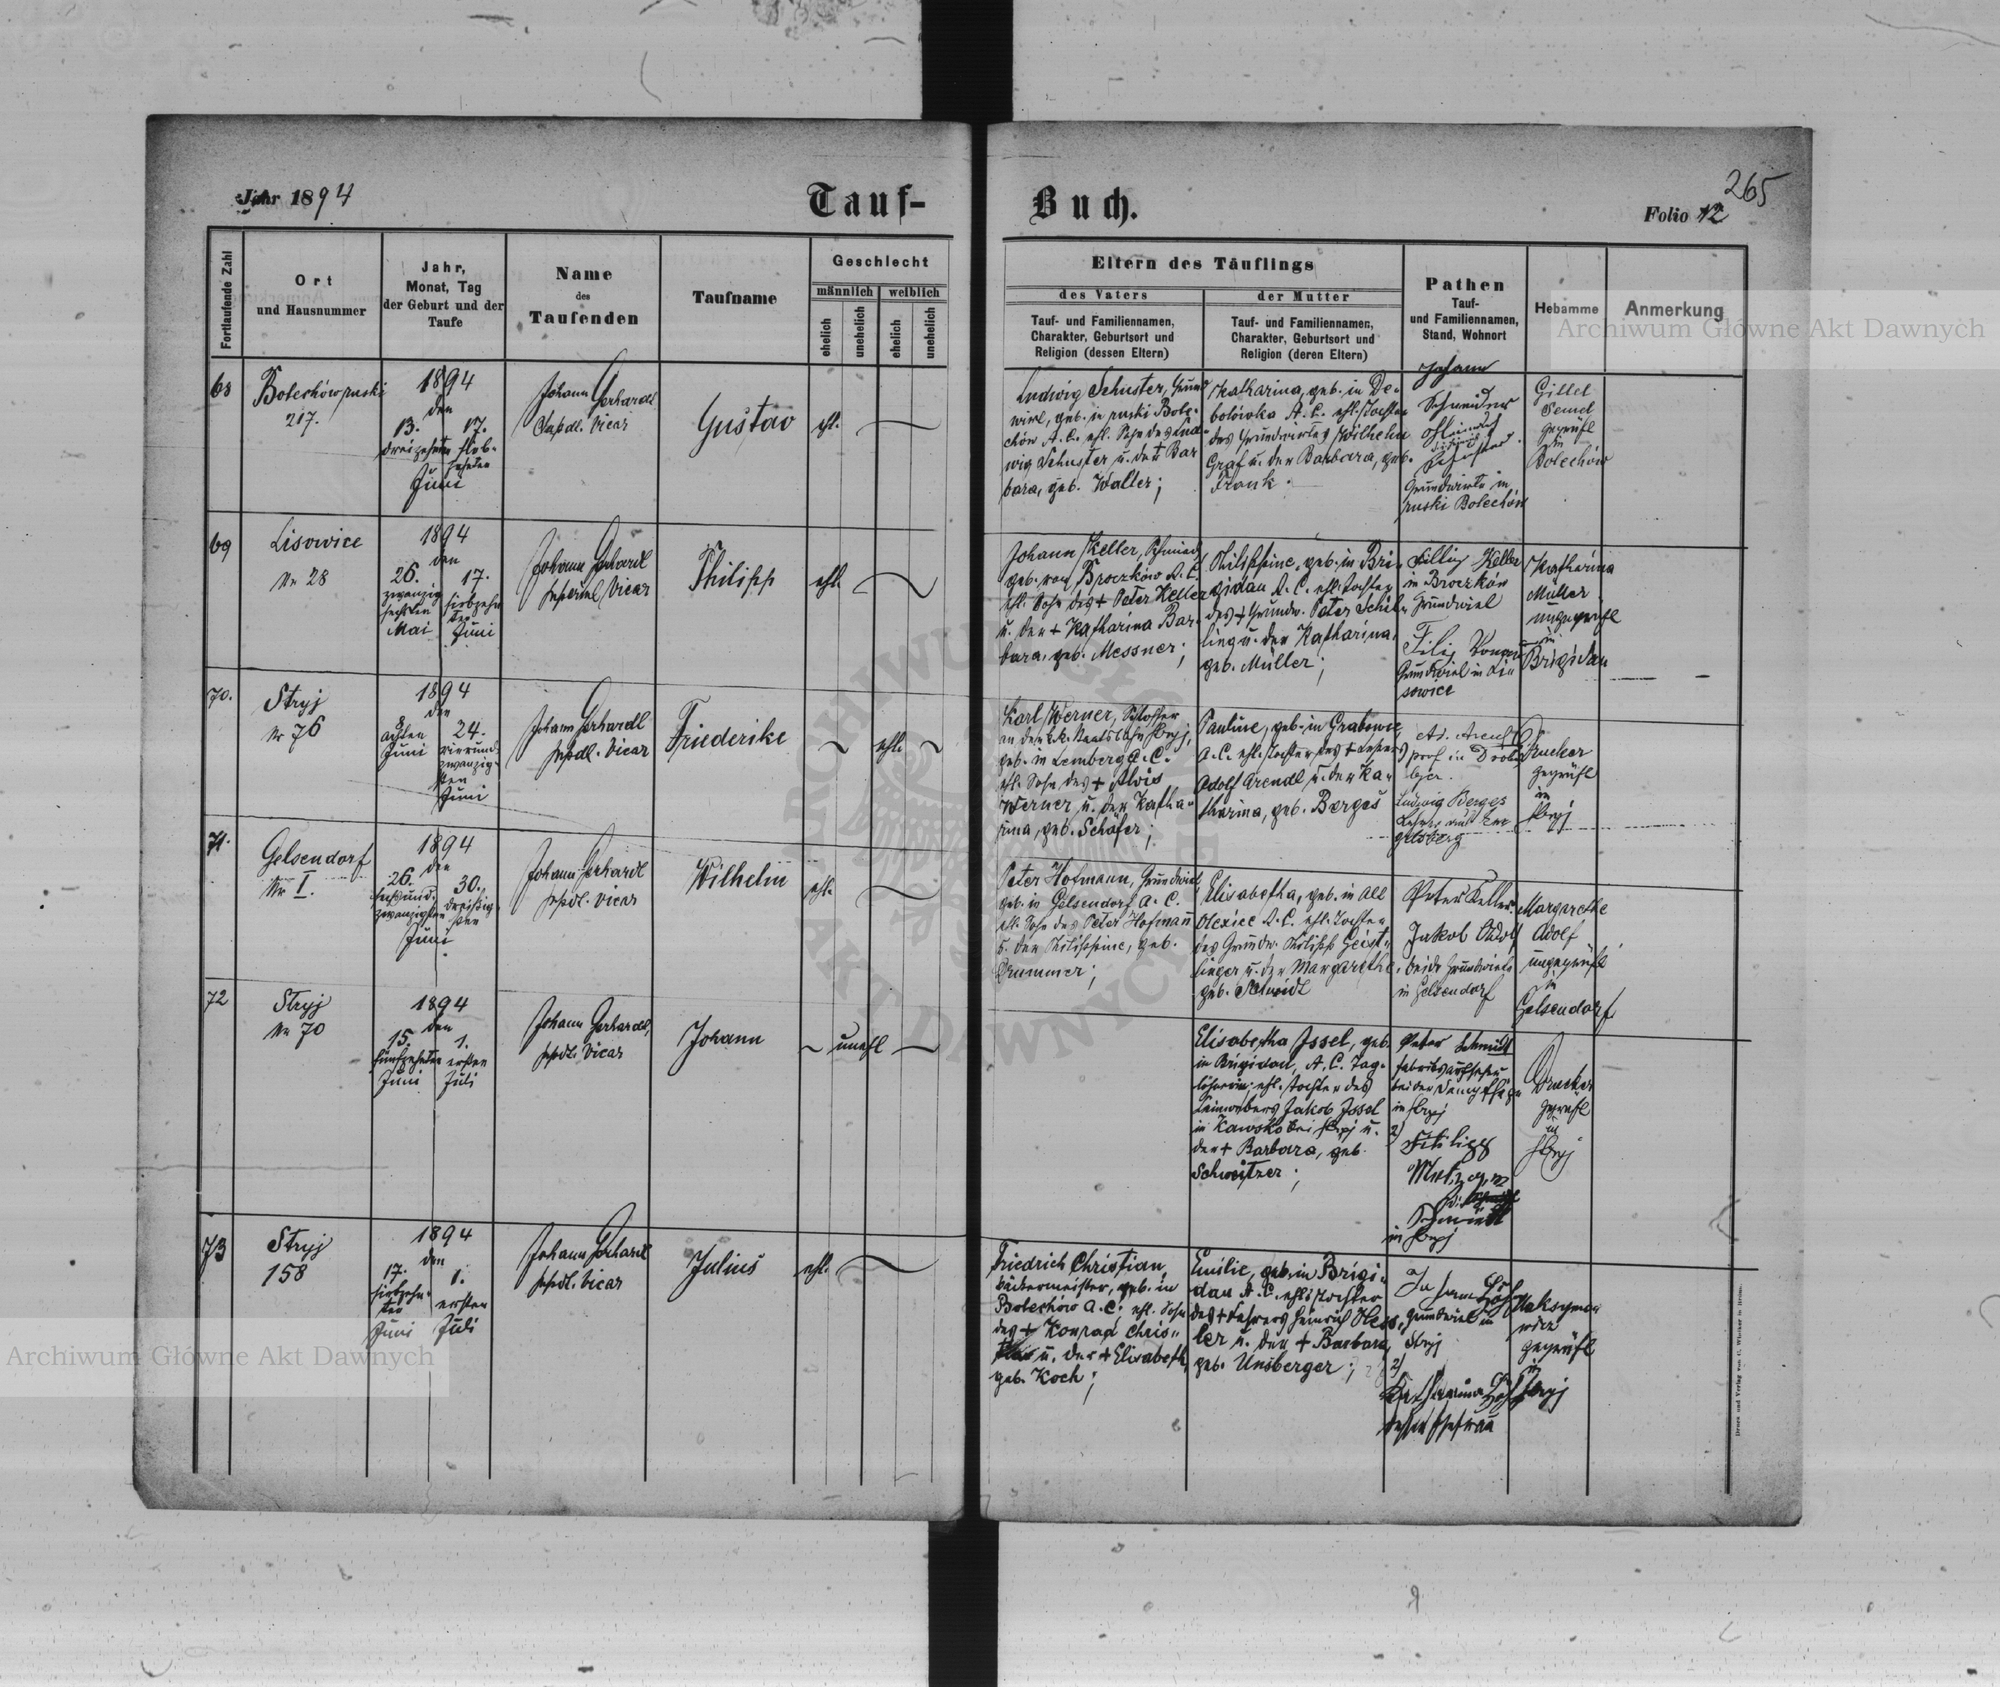 Jahr 1894
Tauf-
Buch.
265
Folio 12
Fortlaufende Zahl
Ort
und Hausnummer
Jahr,
Monat, Tag
der Geburt und der
Taufe
Name
des
Taufenden
Taufname
Geschlecht
männlich
weiblich
ehelich
unehelich
ehelich
unehelich
Eltern des Täuflings
des Vaters
Tauf- und Familiennamen,
Charakter, Geburtsort und
Religion (dessen Eltern)
der Mutter
Tauf- und Familiennamen,
Charakter, Geburtsort und
Religion (deren Eltern)
Pathen
Tauf-
und Familiennamen,
Stand, Wohnort
Hebamme
Anmerkung
Archiwum Główne Akt Dawnych
68
Bolechów ruski
217.
1894
den
13.
dreizehnten
17.
sieb-
zehnten
Juni
Johann Gerhardt
Vicar
Gustav
ehl.
Ludwig Schuster, Grund
wirt, geb. in ruski Bole-
chów A. C. ehl. Sohn des Lud-
wig Schuster u. der + Bar
bara, geb. Walter;
Katharina, geb. in De-
bolówka A. C. ehl. Tochter
des Grundwirtes Wilhelm
Graf u. der Barbara, geb.
Frank.
Johann
Schneider
Heinrich
Schuster
Grundwirte in
ruski Bolechów
Gittel
Semel
geprüft
in
Bolechów
69
Lisowice
Nr 28
1894
den
26.
zwanzig
sechsten
Mai
17.
siebzehn
ten
Juni
Johann Gerhardt
Vicar
Philipp
ehl.
Johann Keller, Schmied
geb. von Broczków A. C.
ehl. Sohn des + Peter Keller
u. der + Katharina Bar-
bara, geb. Messner;
Philippine, geb. in Bri-
gidau A. C. ehl. Tochter
des + Grundw. Peter Schil-
ling u. der Katharina,
geb. Müller;
Fillip Keller
in Broczków
Grundwirt
Filip
Grundwirt in Li
sowice
Katharina
Müller
ungeprüft
in
Brigidau
70.
Stryj
Nr 76
1894
den
8
achten
Juni
24.
vierund-
zwanzig-
sten
Juni
Johann Gerhardt
Vicar
Friederike
ehl.
Karl Werner, Schlosser
an der k.k. Staatsbahn Stryj,
geb. in Lemberg A. C.
ehl. Sohn des + Alois
Werner u. der Katha-
rina, geb. Schäfer;
Pauline, geb. in Grabowce
A. C. ehl. Tochter des + Lehrers
Adolf Arendt u. der Ka-
tharina, geb. Berges
Ad. Arendt
prof in Droho
bycz.
Ludwig Berges
Lehrer aus
gelsberg
Drucker
geprüft
in
Stryj
71.
Gelsendorf
Nr I.
1894
den
26.
sechsund-
zwanzigsten
30.
dreißig-
sten
Juni
Johann Gerhardt
Vicar
Wilhelm
ehl.
Peter Hofmann, Grundwirt
geb. in Gelsendorf A. C.
ehl. Sohn des Peter Hofmann
u. der Philippine, geb.
Drummer;
Elisabetha, geb. in Alt
Olexice A. C. ehl. Tochter
des Grundw. Philipp Geist-
linger u. der Margarethe,
geb. Schmidt
Peter Keller.
Jakob Adolf
beide Grundwirte
in Gelsendorf
Margarethe
Adolf
ungeprüft
in
Gelsendorf
72
Stryj
Nr 70
1894
den
15.
fünfzehnten
Juni
1.
ersten
Juli
Johann Gerhardt,
Vicar
Johann
unehl
Elisabetha Issel, geb.
in Brigidau, A. C. Tag-
löhnerin, ehl. Tochter des
Leinwebers Jakob Issel
in Kawsko bei Stryj u.
der + Barbara, geb.
Schweitzer;
Peter Schmidt
Fabriksaufseher
bei der Dampfsäge
in Stryj
2)
Filipp
Metzger
Schmidt
in Stryj
Drucker
geprüft
in
Stryj
73
Stryj
158
1894
den
17.
siebzehn-
ten
Juni
1.
ersten
Juli
Johann Gerhardt
Vicar
Julius
ehl.
Friedrich Christian,
Bäckermeister, geb. in
Bolechów A. C. ehl. Sohn
des + Konrad Chris-
tian u. der + Elisabeth,
geb. Koch;
Emilie, geb. in Brigi-
dau A. C. ehl. Tochter
des + Lehrers Heinrich Hess-
ler u. der + Barbara,
geb. Unsberger;
Johann
Grundwirt in
Stryj
2)
Katharina
dessen Ehefrau
geprüft
in
Stryj
Archiwum Główne Akt Dawnych
ARCHIWUM GŁÓWNE AKT DAWNYCH